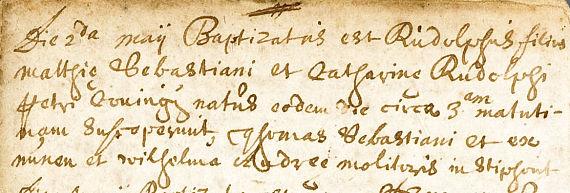 Die 2da maij Baptizatus est Rudolphus filius
Matthie Sebastiani et Catharine Rudolphi
Petri natus eodem die circa 3am matuti-
nam susceperunt, Thomas Sebastiani et ex
et Wilhelma Andree molitoris in